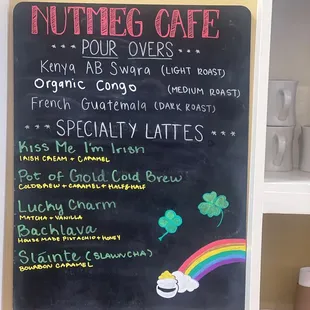 NUTMEG CAFE
*** POUR OVERS ***
Kenya AB Swara (LIGHT ROAST)
Organic Congo (MEDIUM ROAST)
French Guatemala (DARK ROAST)
*** SPECIALTY LATTES ***
Kiss Me I'm Irish
IRISH CREAM + CARAMEL
Pot of Gold Cold Brew
COLDBREW + CARAMEL + HALF&HALF
Lucky Charm
MATCHA + VANILLA
Bachlava
HOUSE MADE PISTACHIO + HONEY
Sláinte (SLAWNCHA)
BOURBON CARAMEL